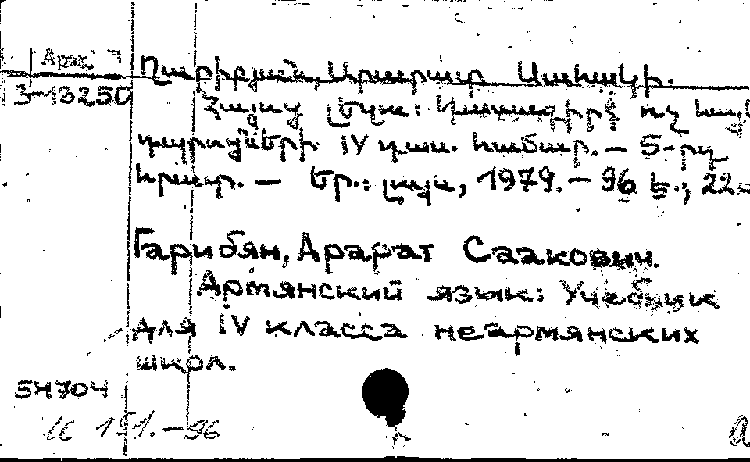 Арх.
3-13250
Ղարիբյան, Արարատ Սահակի.
Հայոց լեզու: Դասագիրք ոչ հայկ
դպրոցների IV դաս. համար. — 5-րդ
հրատ. — Եր.: Լույս, 1979. — 96 է.; 22
Гарибян, Арарат Саакович.
Армянский язык: Учебник
для IV класса неармянских
школ.
54704
191. — 96